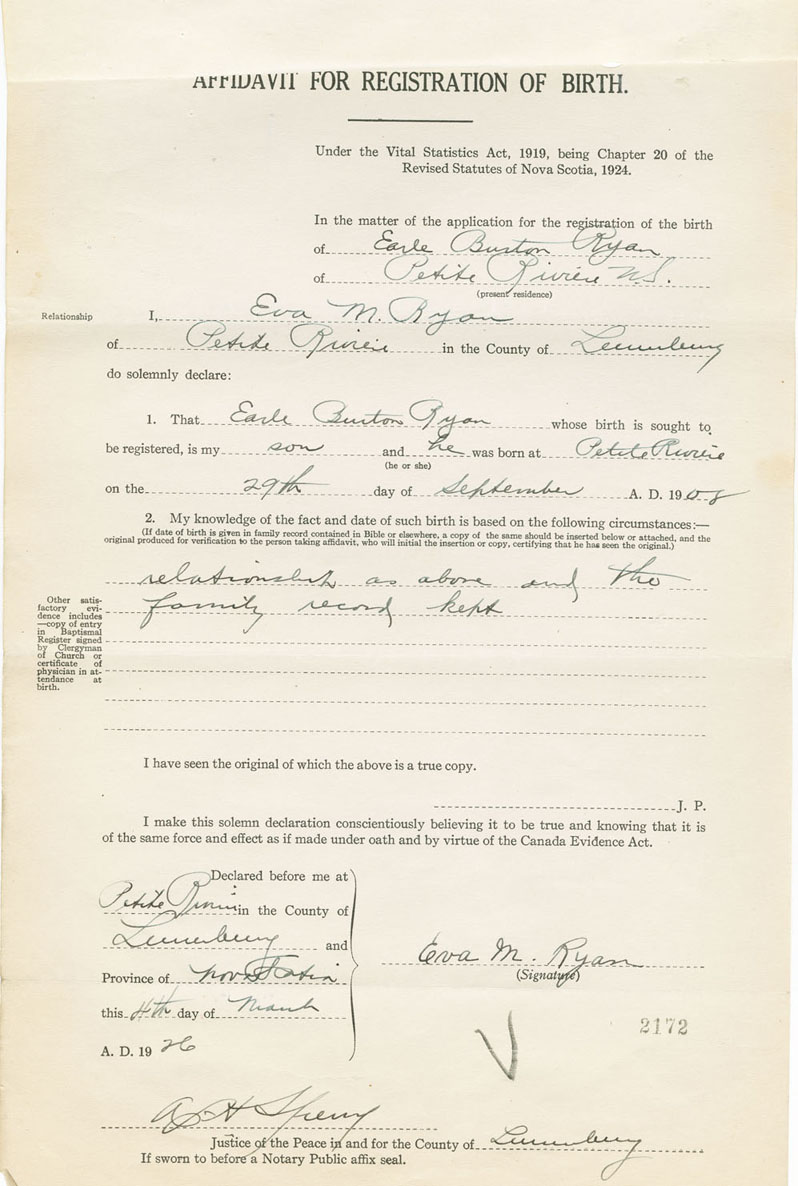 AFFIDAVIT FOR REGISTRATION OF BIRTH.
Under the Vital Statistics Act, 1919, being Chapter 20 of the
Revised Statutes of Nova Scotia, 1924.
In the matter of the application for the registration of the birth
of Earle Burton Ryan
of Petite Riviere N.S.
(present residence)
Relationship I, Eva M. Ryan
of Petite Riviere in the County of Lunenburg
do solemnly declare:
1. That Earle Burton Ryan whose birth is sought to
be registered, is my son and he was born at Petite Riviere
(he or she)
on the 29th day of September A. D. 1908
2. My knowledge of the fact and date of such birth is based on the following circumstances:—
(If date of birth is given in family record contained in Bible or elsewhere, a copy of the same should be inserted below or attached, and the
original produced for verification to the person taking affidavit, who will initial the insertion or copy, certifying that he has seen the original.)
relationship as above and the
family record kept
Other satis-
factory evi-
dence includes
—copy of entry
in Baptismal
Register signed
by Clergyman
of Church or
certificate of
physician in at-
tendance at
birth.
I have seen the original of which the above is a true copy.
J. P.
I make this solemn declaration conscientiously believing it to be true and knowing that it is
of the same force and effect as if made under oath and by virtue of the Canada Evidence Act.
Declared before me at
Petite Riviere in the County of
Lunenburg and
Province of Nova Scotia
this 4th day of March
A. D. 1926
Eva M. Ryan
(Signature)
2172
Justice of the Peace in and for the County of Lunenburg
If sworn to before a Notary Public affix seal.